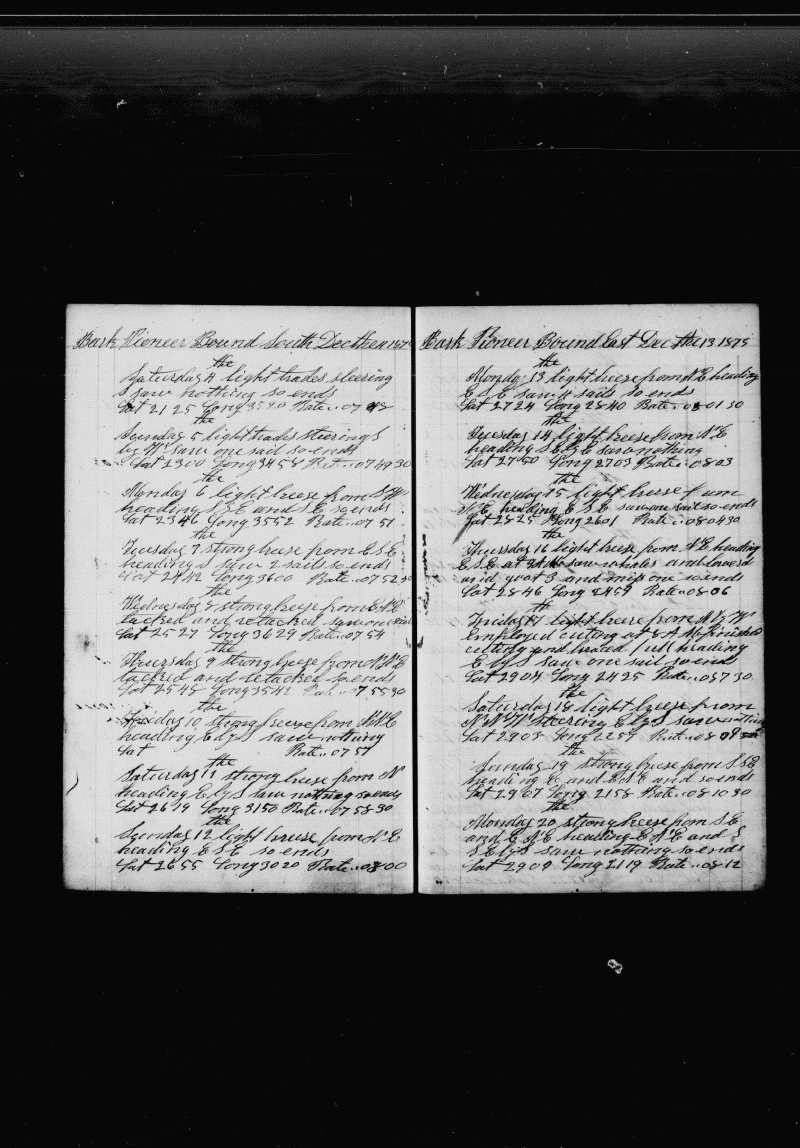 Bark Pioneer Bound South Dec the 4 187
the
Saturday 4 light trades steering
S saw nothing so ends
Lat 21 25 Long 35 20 Rate .. 07 48
the
Sunday 5 light trades steering S
by W saw one sail so ends
Lat 23 00 Long 34 58 Rate .. 07 49 30
the
Monday 6 light breese from S W
heading S S E and S E so ends
Lat 23 46 Long 35 52 Rate .. 07 51
the
Tuesday 7 strong breese from E S E
heading S saw 2 sails so ends
Lat 24 42 Long 36 00 Rate .. 07 52 30
the
Wednesday 8 strong breese from E N E
tacked and retacked saw one sail
Lat 25 27 Long 36 29 Rate .. 07 54
the
Thursday 9 strong breese from N N E
tacked and retacked so ends
Lat 25 45 Long 35 42 Rate .. 07 55 30
the
Friday 10 strong breese from N N E
heading E by S saw nothing
Lat Rate .. 07 57
the
Saturday 11 strong breese from N
heading E by S saw nothing so ends
Lat 26 19 Long 31 50 Rate .. 07 58 30
the
Sunday 12 light breese from N E
heading E S E so ends
Lat 26 55 Long 30 20 Rate .. 08 00
Bark Pioneer Bound East Dec the 13 1875
the
Monday 13 light breese from N E heading
E S E saw 4 sails so ends
Lat 27 24 Long 28 40 Rate .. 08 01 30
the
Tuesday 14 light breese from N E
heading S E by E saw nothing
Lat 27 50 Long 27 03 Rate .. 08 03
the
Wednesday 15 light breese from
N E heading E S E saw one sail so ends
Lat 28 25 Long 26 01 Rate .. 08 04 30
the
Thursday 16 light breese from N E heading
E S E at saw whales and lowerd
and goat 3 and mip one so ends
Lat 28 46 Long 24 59 Rate .. 08 06
the
Friday 17 light breese from N by W
Employed cuting at 8 A M finished
cutting and braced full heading
E by S saw one sail so ends
Lat 29 04 Long 24 25 Rate .. 08 7 30
the
Saturday 18 light breese from
N N W steering E by S saw nothing
Lat 29 03 Long 22 57 Rate .. 08 09
the
Sunday 19 strong breese from S S E
heading E and E N E and so ends
Lat 29 07 Long 21 58 Rate .. 08 10 30
the
Monday 20 strong breese from S E
and E N E heading E N E and S
S E by S saw nothing so ends
Lat 29 09 Long 21 19 Rate .. 08 12